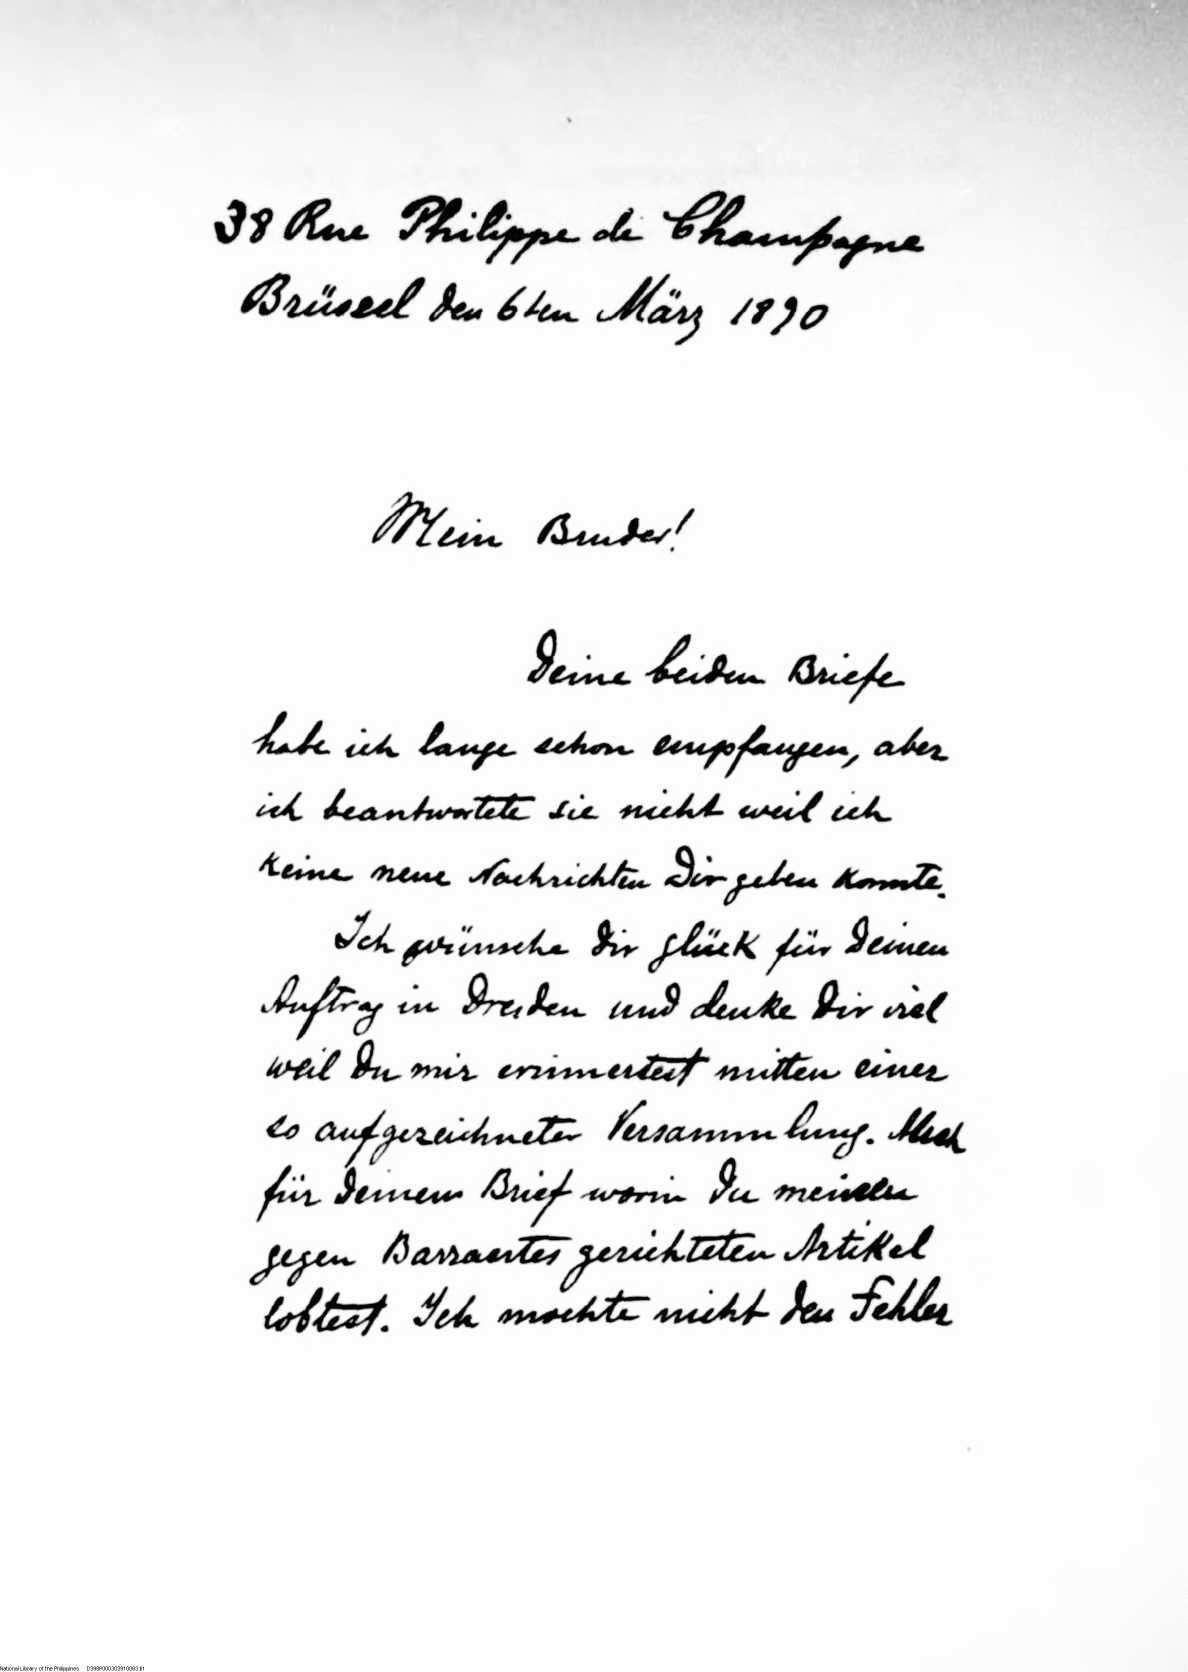 38 Rue Philippe de Champagne
Brüssel den 6ten März 1890
Mein Bruder!
Deine beiden Briefe
habe ich lange schon empfangen, aber
ich beantwortete sie nicht weil ich
keine neue Nachrichten Dir geben konnte.
Ich wünsche Dir glück für Deinen
Auftrag in Dresden und denke Dir viel
weil Du mir erinnertest mitten einer
so aufgezeichneter Versammlung. Auch
für Deinem Brief worin Du meinen
gegen Barrantes gerichteten Artikel
lobtest. Ich mochte nicht den Fehler
National Library of the Philippines